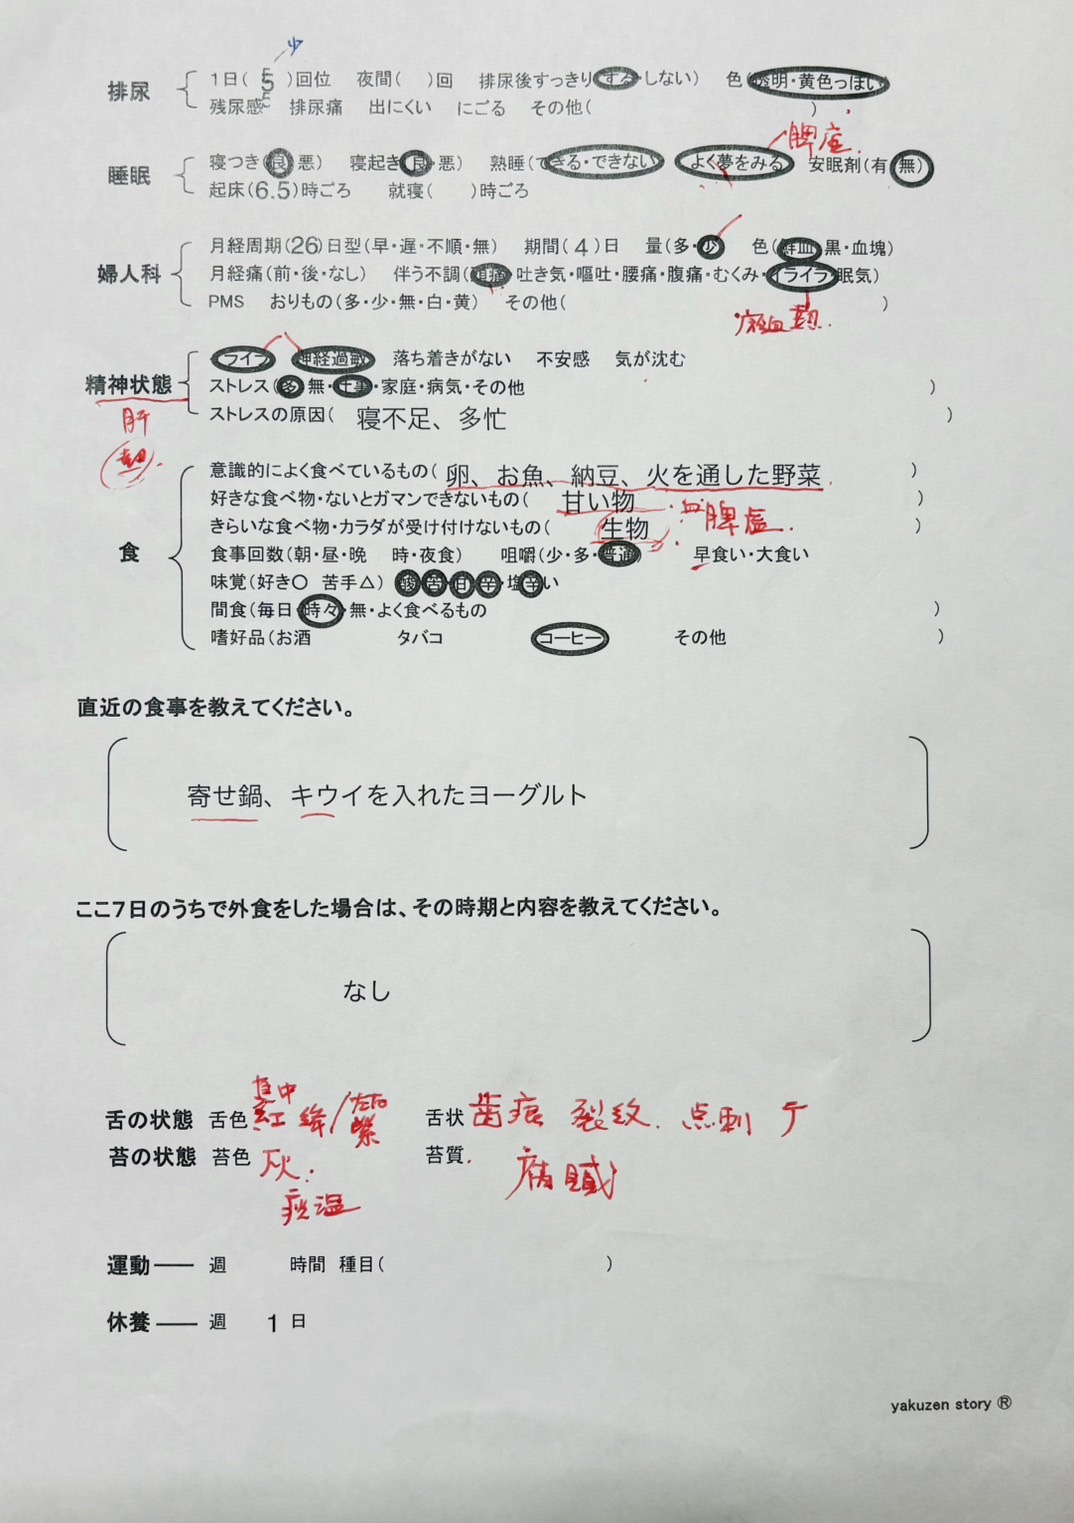 少
排尿 1日( 5 )回位 夜間( )回 排尿後すっきり(する・しない) 色(透明・黄色っぽい
残尿感 排尿痛 出にくい にごる その他( )
脾虚
睡眠 寝つき(良・悪) 寝起き(良・悪) 熟睡(できる・できない) よく夢をみる 安眠剤(有・無)
起床(6.5)時ごろ 就寝( )時ごろ
婦人科 月経周期(26)日型(早・遅・不順・無) 期間(4)日 量(多・少) 色(鮮血・黒・血塊)
月経痛(前・後・なし) 伴う不調(頭痛・吐き気・嘔吐・腰痛・腹痛・むくみ・イライラ・眠気)
PMS おりもの(多・少・無・白・黄) その他( )
瘀血
精神状態 イライラ 神経過敏 落ち着きがない 不安感 気が沈む
ストレス(多・無・仕事・家庭・病気・その他 )
ストレスの原因( 寝不足、多忙 )
肝
熱
食 意識的によく食べているもの( 卵、お魚、納豆、火を通した野菜 )
好きな食べ物・ないとガマンできないもの( 甘い物 )
脾虚
きらいな食べ物・カラダが受け付けないもの( 生物 )
食事回数(朝・昼・晩 時・夜食) 咀嚼(少・多・普通) 早食い・大食い
味覚(好き〇 苦手△) 酸・苦・甘・辛・塩辛い
間食(毎日・時々・無・よく食べるもの )
嗜好品(お酒 タバコ コーヒー その他 )
直近の食事を教えてください。
寄せ鍋、キウイを入れたヨーグルト
ここ7日のうちで外食をした場合は、その時期と内容を教えてください。
なし
舌の状態 舌色 真中 紅 絳/左右 紫 舌状 歯痕 裂紋. 点刺
苔の状態 苔色 灰. 苔質. 腐膩
痰湿
運動 ― 週 時間 種目( )
休養 ― 週 1 日
yakuzen story ®